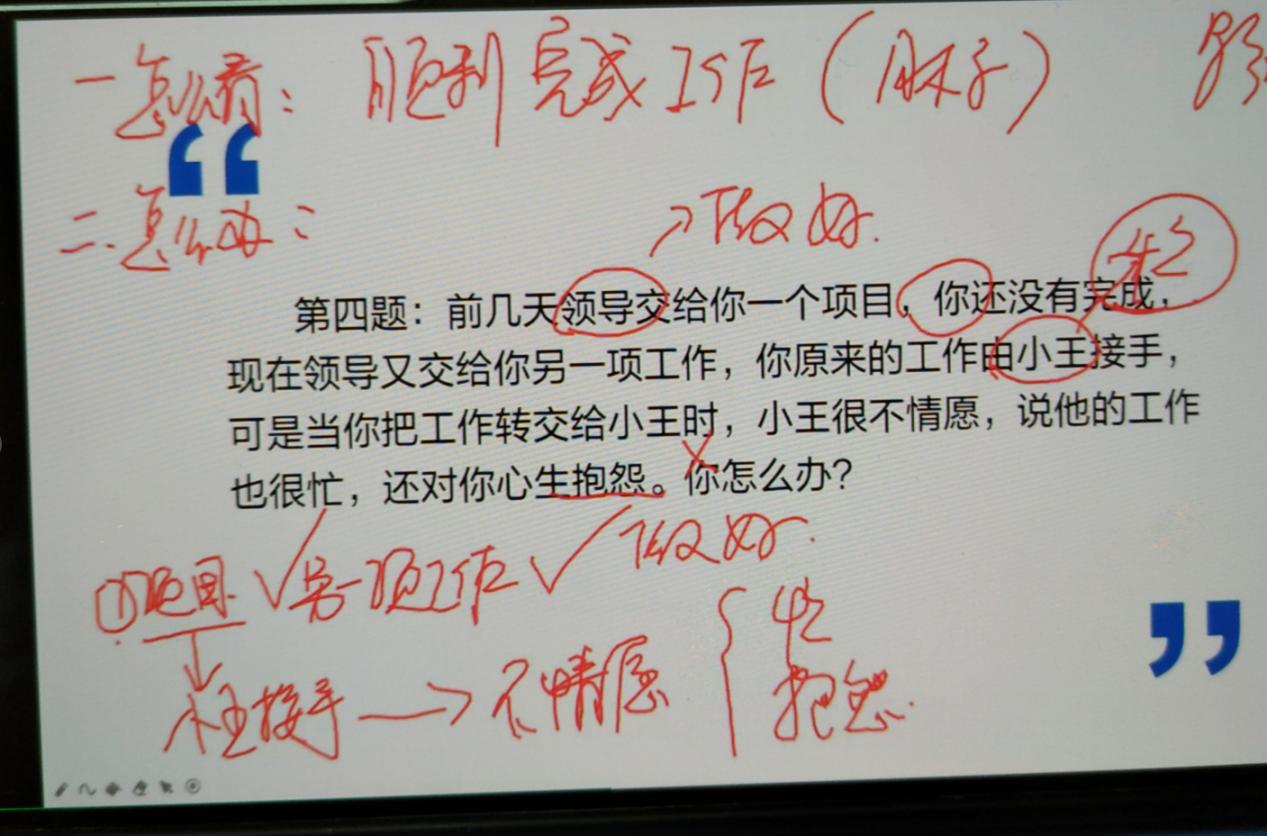 一怎么看：顺利完成工作（麻子）
二.怎么办：
→做好.
第四题：前几天领导交给你一个项目，你还没有完成，
现在领导又交给你另一项工作，你原来的工作由小王接手，
可是当你把工作转交给小王时，小王很不情愿，说他的工作
也很忙，还对你心生抱怨。你怎么办？
①项目 √ 另一项工作 √ 做好.
小王接手 → 不情愿 { 忙
抱怨.